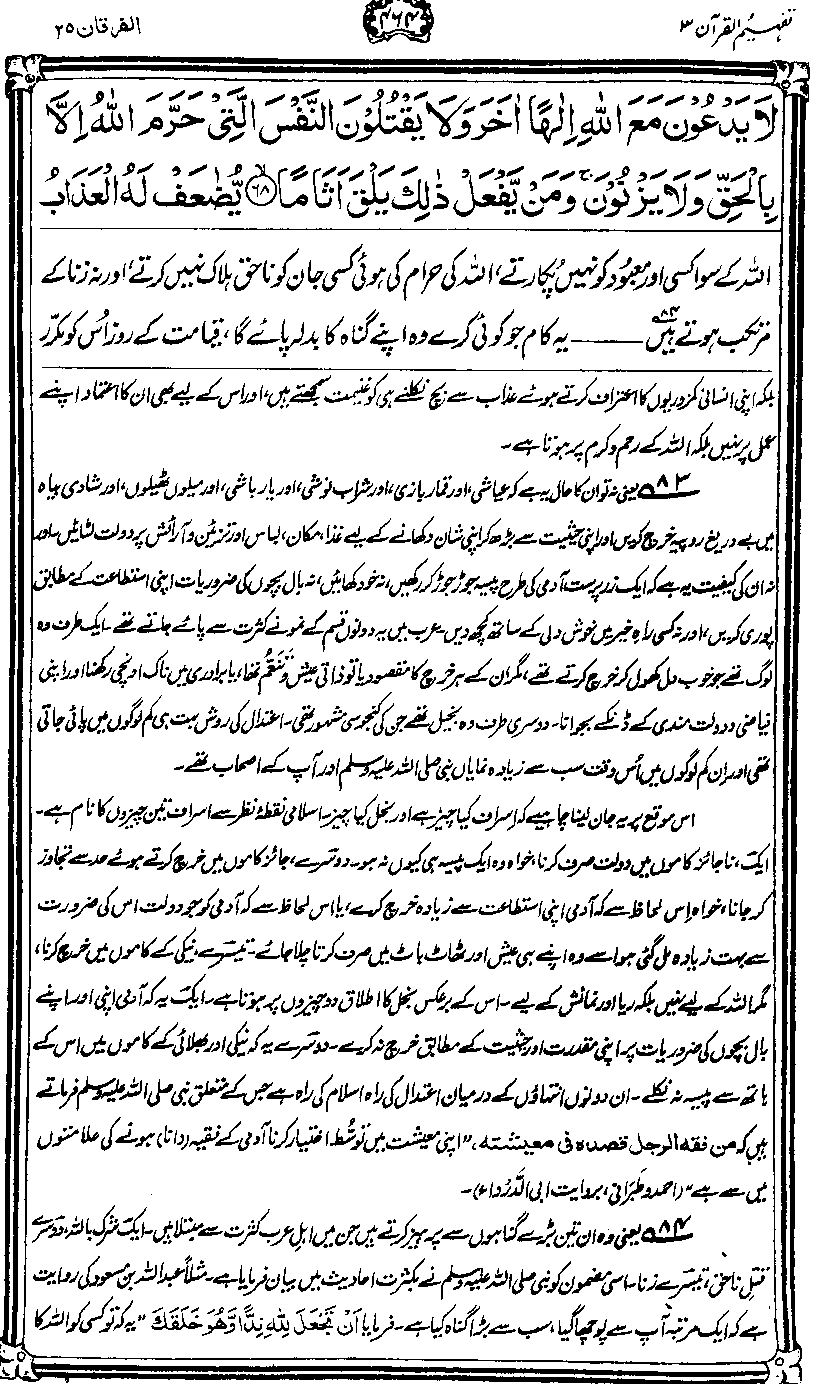 تفہیم القرآن ۳
۴۶۴
الفرقان ۲۵
لَا يَدْعُوْنَ مَعَ اللّٰهِ اِلٰهًا اٰخَرَ وَلَا يَقْتُلُوْنَ النَّفْسَ الَّتِيْ حَرَّمَ اللّٰهُ اِلَّا
بِالْحَقِّ وَلَا يَزْنُوْنَ ۚ وَمَنْ يَّفْعَلْ ذٰلِكَ يَلْقَ اَثَامًا ۙ﴿۶۸﴾ يُّضٰعَفْ لَهُ الْعَذَابُ
اللہ کے سوا کسی اور معبود کو نہیں پُکارتے، اللہ کی حرام کی ہوئی کسی جان کو ناحق ہلاک نہیں کرتے، اور نہ زنا کے
مرتکب ہوتے ہیں۸۴ ـــــــ یہ کام جو کوئی کرے وہ اپنے گناہ کا بدلہ پائے گا، قیامت کے روز اُس کو مکرّر
بلکہ اپنی انسانی کمزوریوں کا اعتراف کرتے ہوئے عذاب سے بچ نکلنے ہی کو غنیمت سمجھتے ہیں، اور اس کے لیے بھی ان کا اعتماد اپنے
عمل پر نہیں بلکہ اللہ کے رحم و کرم پر ہوتا ہے۔
۸۳ یعنی نہ تو ان کا حال یہ ہے کہ عیاشی، اور قمار بازی، اور شراب نوشی، اور یار باشی، اور میلوں ٹھیلوں، اور شادی بیاہ
میں بے دریغ روپیہ خرچ کریں اور اپنی حیثیت سے بڑھ کر اپنی شان دکھانے کے لیے غذا، مکان، لباس اور تزئین و آرائش پر دولت لٹائیں۔ اور
نہ ان کی کیفیت یہ ہے کہ ایک زر پرست آدمی کی طرح پیسہ جوڑ جوڑ کر رکھیں، نہ خود کھائیں، نہ بال بچوں کی ضروریات اپنی استطاعت کے مطابق
پوری کریں، اور نہ کسی راہِ خیر میں خوش دلی کے ساتھ کچھ دیں۔ عرب میں یہ دونوں قسم کے نمونے کثرت سے پائے جاتے تھے۔ ایک طرف وہ
لوگ تھے جو خوب دل کھول کر خرچ کرتے تھے، مگر ان کے ہر خرچ کا مقصود یا تو ذاتی عیش و تَنَعُّم تھا، یا برادری میں ناک اونچی رکھنا اور اپنی
فیاضی و دولت مندی کے ڈنکے بجوانا۔ دوسری طرف وہ بخیل تھے جن کی کنجوسی مشہور تھی۔ اعتدال کی روش بہت ہی کم لوگوں میں پائی جاتی
تھی اور ان کم لوگوں میں اُس وقت سب سے زیادہ نمایاں نبی صلی اللہ علیہ وسلم اور آپ کے اصحاب تھے۔
اس موقع پر یہ جان لینا چاہیے کہ اِسراف کیا چیز ہے اور بخل کیا چیز۔ اسلامی نقطۂ نظر سے اسراف تین چیزوں کا نام ہے۔
ایک، ناجائز کاموں میں دولت صرف کرنا، خواہ وہ ایک پیسہ ہی کیوں نہ ہو۔ دوسرے، جائز کاموں میں خرچ کرتے ہوئے حد سے تجاوز
کر جانا، خواہ اِس لحاظ سے کہ آدمی اپنی استطاعت سے زیادہ خرچ کرے، یا اس لحاظ سے کہ آدمی کو جو دولت اس کی ضرورت
سے بہت زیادہ مل گئی ہو اسے وہ اپنے ہی عیش اور ٹھاٹ باٹ میں صرف کرتا چلا جائے۔ تیسرے، نیکی کے کاموں میں خرچ کرنا،
مگر اللہ کے لیے نہیں بلکہ ریا اور نمائش کے لیے۔ اس کے برعکس بخل کا اطلاق دو چیزوں پر ہوتا ہے۔ ایک یہ کہ آدمی اپنی اور اپنے
بال بچوں کی ضروریات پر اپنی مقدرت اور حیثیت کے مطابق خرچ نہ کرے۔ دوسرے یہ کہ نیکی اور بھلائی کے کاموں میں اس کے
ہاتھ سے پیسہ نہ نکلے۔ ان دونوں انتہاؤں کے درمیان اعتدال کی راہ اسلام کی راہ ہے جس کے متعلق نبی صلی اللہ علیہ وسلم فرماتے
ہیں کہ من فقه الرجل قصده فى معيشته، ”اپنی معیشت میں توسُّط اختیار کرنا آدمی کے فقیہ (دانا) ہونے کی علامتوں
میں سے ہے“ (احمد و طَبَرانی، بروایت ابی الدَّرداء)۔
۸۴ یعنی وہ ان تین بڑے گناہوں سے پرہیز کرتے ہیں جن میں اہلِ عرب کثرت سے مبتلا ہیں۔ ایک شرک باللہ، دوسرے
قتلِ ناحق، تیسرے زنا۔ اسی مضمون کو نبی صلی اللہ علیہ وسلم نے بکثرت احادیث میں بیان فرمایا ہے۔ مثلاً عبد اللہ بن مسعود کی روایت
ہے کہ ایک مرتبہ آپ سے پوچھا گیا، سب سے بڑا گناہ کیا ہے۔ فرمایا اَنْ تَجْعَلَ لِلّٰهِ نِدًّا وَّهُوَ خَلَقَكَ ”یہ کہ تو کسی کو اللہ کا